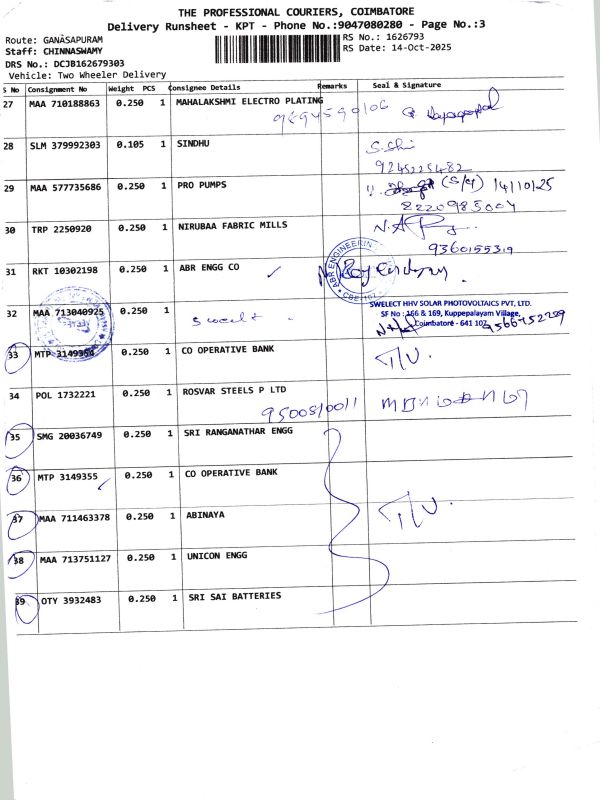 THE PROFESSIONAL COURIERS, COIMBATORE
Delivery Runsheet - KPT - Phone No.:9047080280 - Page No.:3
Route: GANASAPURAM
RS No.: 1626793
Staff: CHINNASWAMY
RS Date: 14-Oct-2025
DRS No.: DCJB162679303
Vehicle: Two Wheeler Delivery
S No Consignment No Weight PCS Consignee Details Remarks Seal & Signature
27 MAA 710188863 0.250 1 MAHALAKSHMI ELECTRO PLATING
28 SLM 379992303 0.105 1 SINDHU
9245225482
29 MAA 577735686 0.250 1 PRO PUMPS (S/4) 14/10/25
2220985004
30 TRP 2250920 0.250 1 NIRUBAA FABRIC MILLS
9360155319
31 RKT 10302198 0.250 1 ABR ENGG CO
ABR ENGINEERIN
CBE
32 MAA 713040925 0.250 1
SWELECT HHV SOLAR PHOTOVOLTAICS PVT, LTD.
SF No : 166 & 169, Kuppepalayam Village,
Coimbatore - 641 107
9566952209
33 MTP 3149354 0.250 1 CO OPERATIVE BANK T/U.
34 POL 1732221 0.250 1 ROSVAR STEELS P LTD
9500510011
35 SMG 20036749 0.250 1 SRI RANGANATHAR ENGG
36 MTP 3149355 0.250 1 CO OPERATIVE BANK
37 MAA 711463378 0.250 1 ABINAYA T/U.
38 MAA 713751127 0.250 1 UNICON ENGG
39 OTY 3932483 0.250 1 SRI SAI BATTERIES